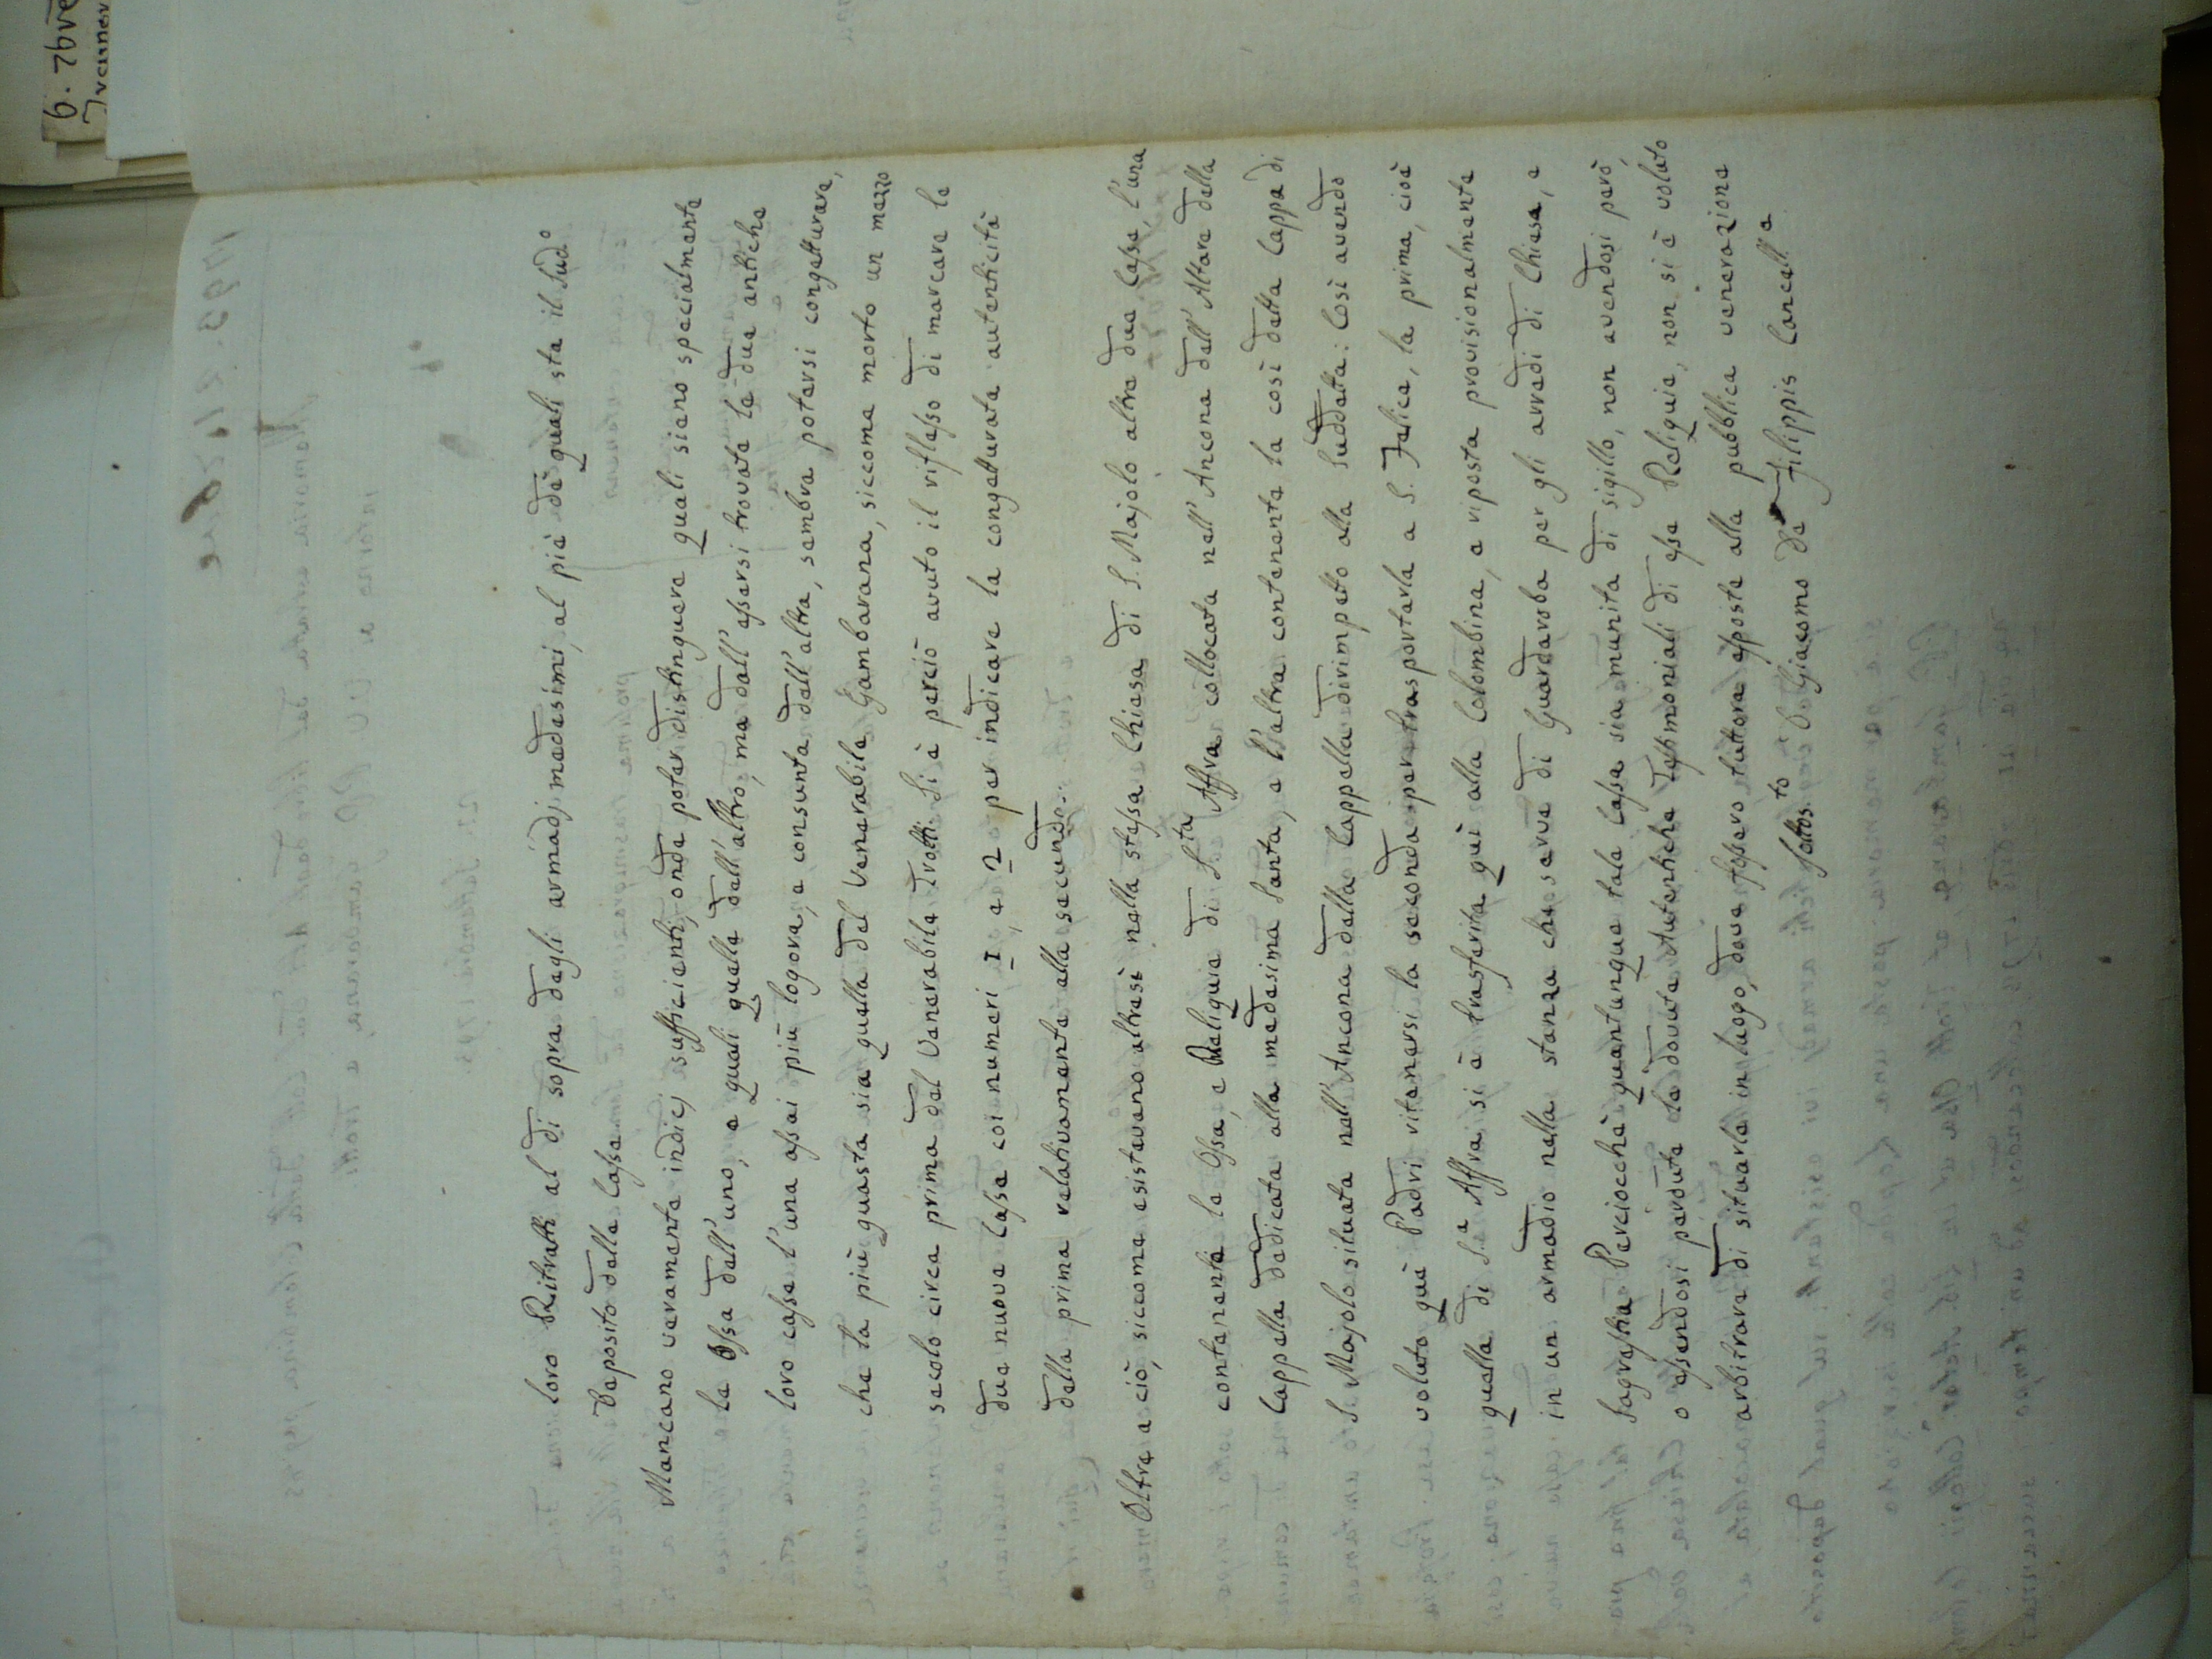 loro Ritratti al di sopra degli armadj medesimi, al piè de' quali sta il sud.o
Deposito delle Casse
Mancano veramente indicj sufficienti, onde poter distinguere quali sieno specialmente
le Ossa dell'uno, e quali quelle dell'altro; ma dall'essersi trovate le due antiche
loro casse l'una assai più logora, e consunta dell'altra, sembra potersi congetturare,
che la più guasta sia quella del Venerabile Gambarana, siccome morto un mezzo
secolo circa prima del Venerabile Trotti. Si è perciò avuto il riflesso di marcare le
due nuove Casse coi numeri 1, e 2 per indicare la congetturata autenticità
della prima relativamente alla seconda.
Oltre a ciò, siccome esistevano altresì nella stessa Chiesa di S. Majolo altre due Casse, l'una
contenente le Ossa, e Reliquie di S.ta Affra collocata nell'Ancona dell'Altare della
Cappella dedicata alla medesima Santa, e l'altra contenente la così detta Cappa di
S. Majolo situata nell'Ancona della Cappella dirimpetto alla suddetta: Così avendo
voluto quei Padri ritenersi la seconda per trasportarla a S. Felice, la prima, cioè
quella di S.a Affra, si è trasferita quì alla Colombina, e riposta provisionalmente
in un armadio nella stanza che serve di Guardaroba per gli arredi di Chiesa, e
Sagrestia. Perciocchè quantunque tale Cassa sia munita di sigillo, non avendosi però,
o essendosi perdute le dovute Autentiche Testimoniali di esse Reliquie, non si è voluto
arbitrare di situarle in luogo, dove fossero tuttora esposte alla pubblica venerazione
Sottos.to D. Giacomo De Filippis Cancell.e
6. 7bre